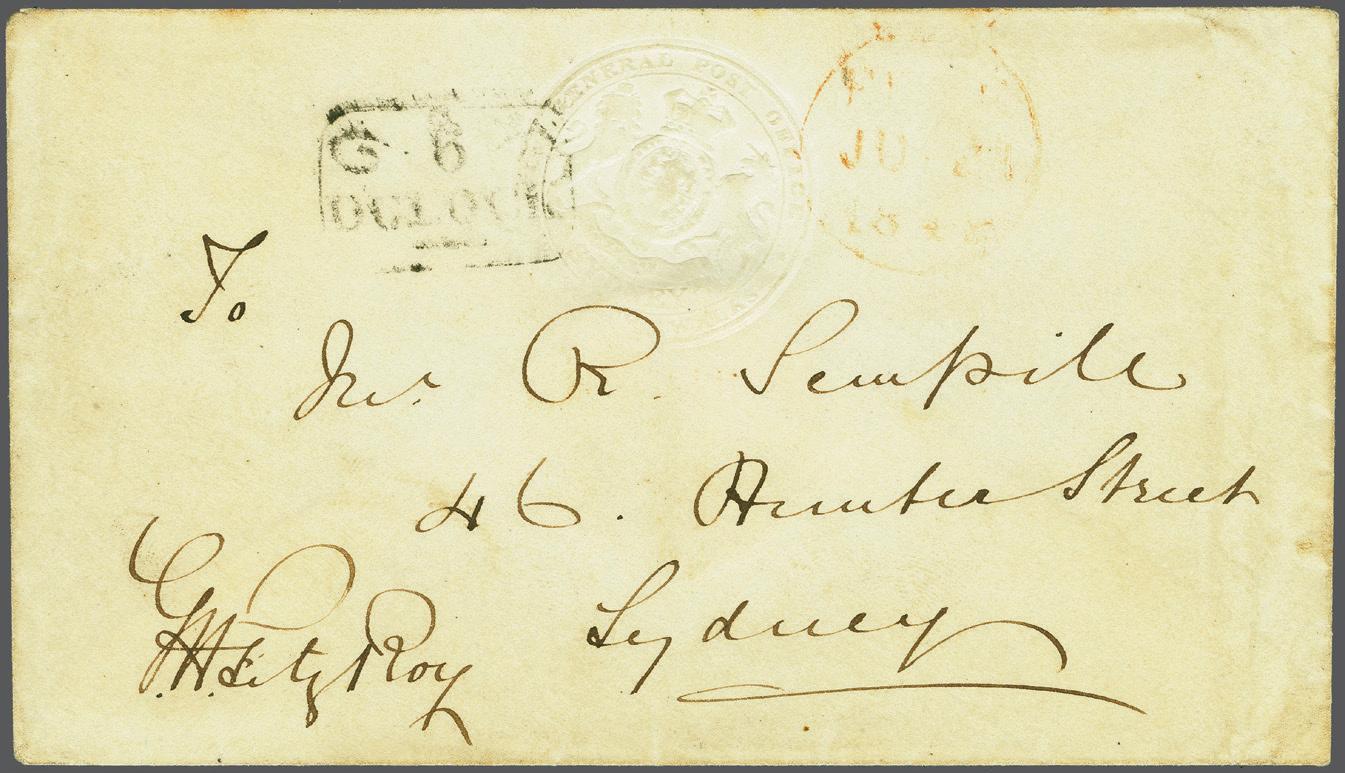 GENERAL POST OFFICE
6
OCLOCK
JU 21
18
To
Mr. R. Sempill
46. Hunter Street
Sydney
G. FitzRoy